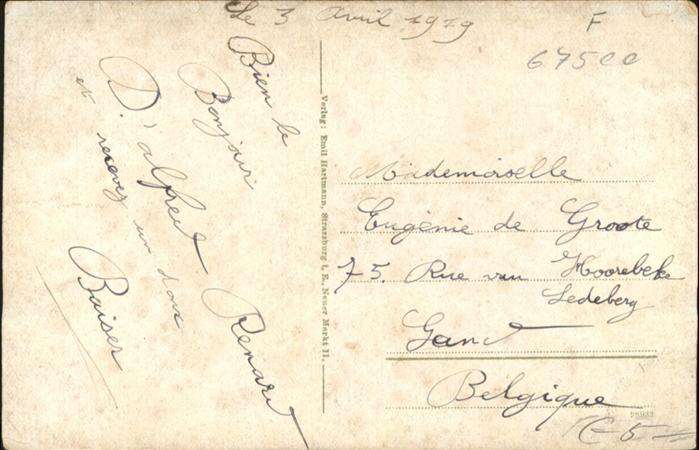 Le 3 Avril 1919
Bien le
Bonjour
D'alfred Renard
et recevez un doux
Baiser
Verlag: Emil Hartmann, Strassburg i. E., Neuer Markt 11.
F
67500
Mademoiselle
Eugénie de Groote
75. Rue van Hoorebeke
Ledeberg
Gand
Belgique